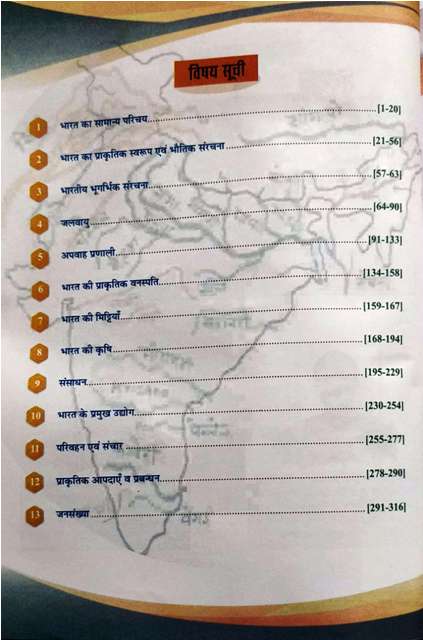 विषय सूची
1 भारत का सामान्य परिचय [1-20]
2 भारत का प्राकृतिक स्वरूप एवं भौतिक संरचना [21-56]
3 भारतीय भूगर्भिक संरचना [57-63]
4 जलवायु [64-90]
5 अपवाह प्रणाली [91-133]
6 भारत की प्राकृतिक वनस्पति [134-158]
7 भारत की मिट्टियाँ [159-167]
8 भारत की कृषि [168-194]
9 संसाधन [195-229]
10 भारत के प्रमुख उद्योग [230-254]
11 परिवहन एवं संचार [255-277]
12 प्राकृतिक आपदाएँ व प्रबन्धन [278-290]
13 जनसंख्या [291-316]